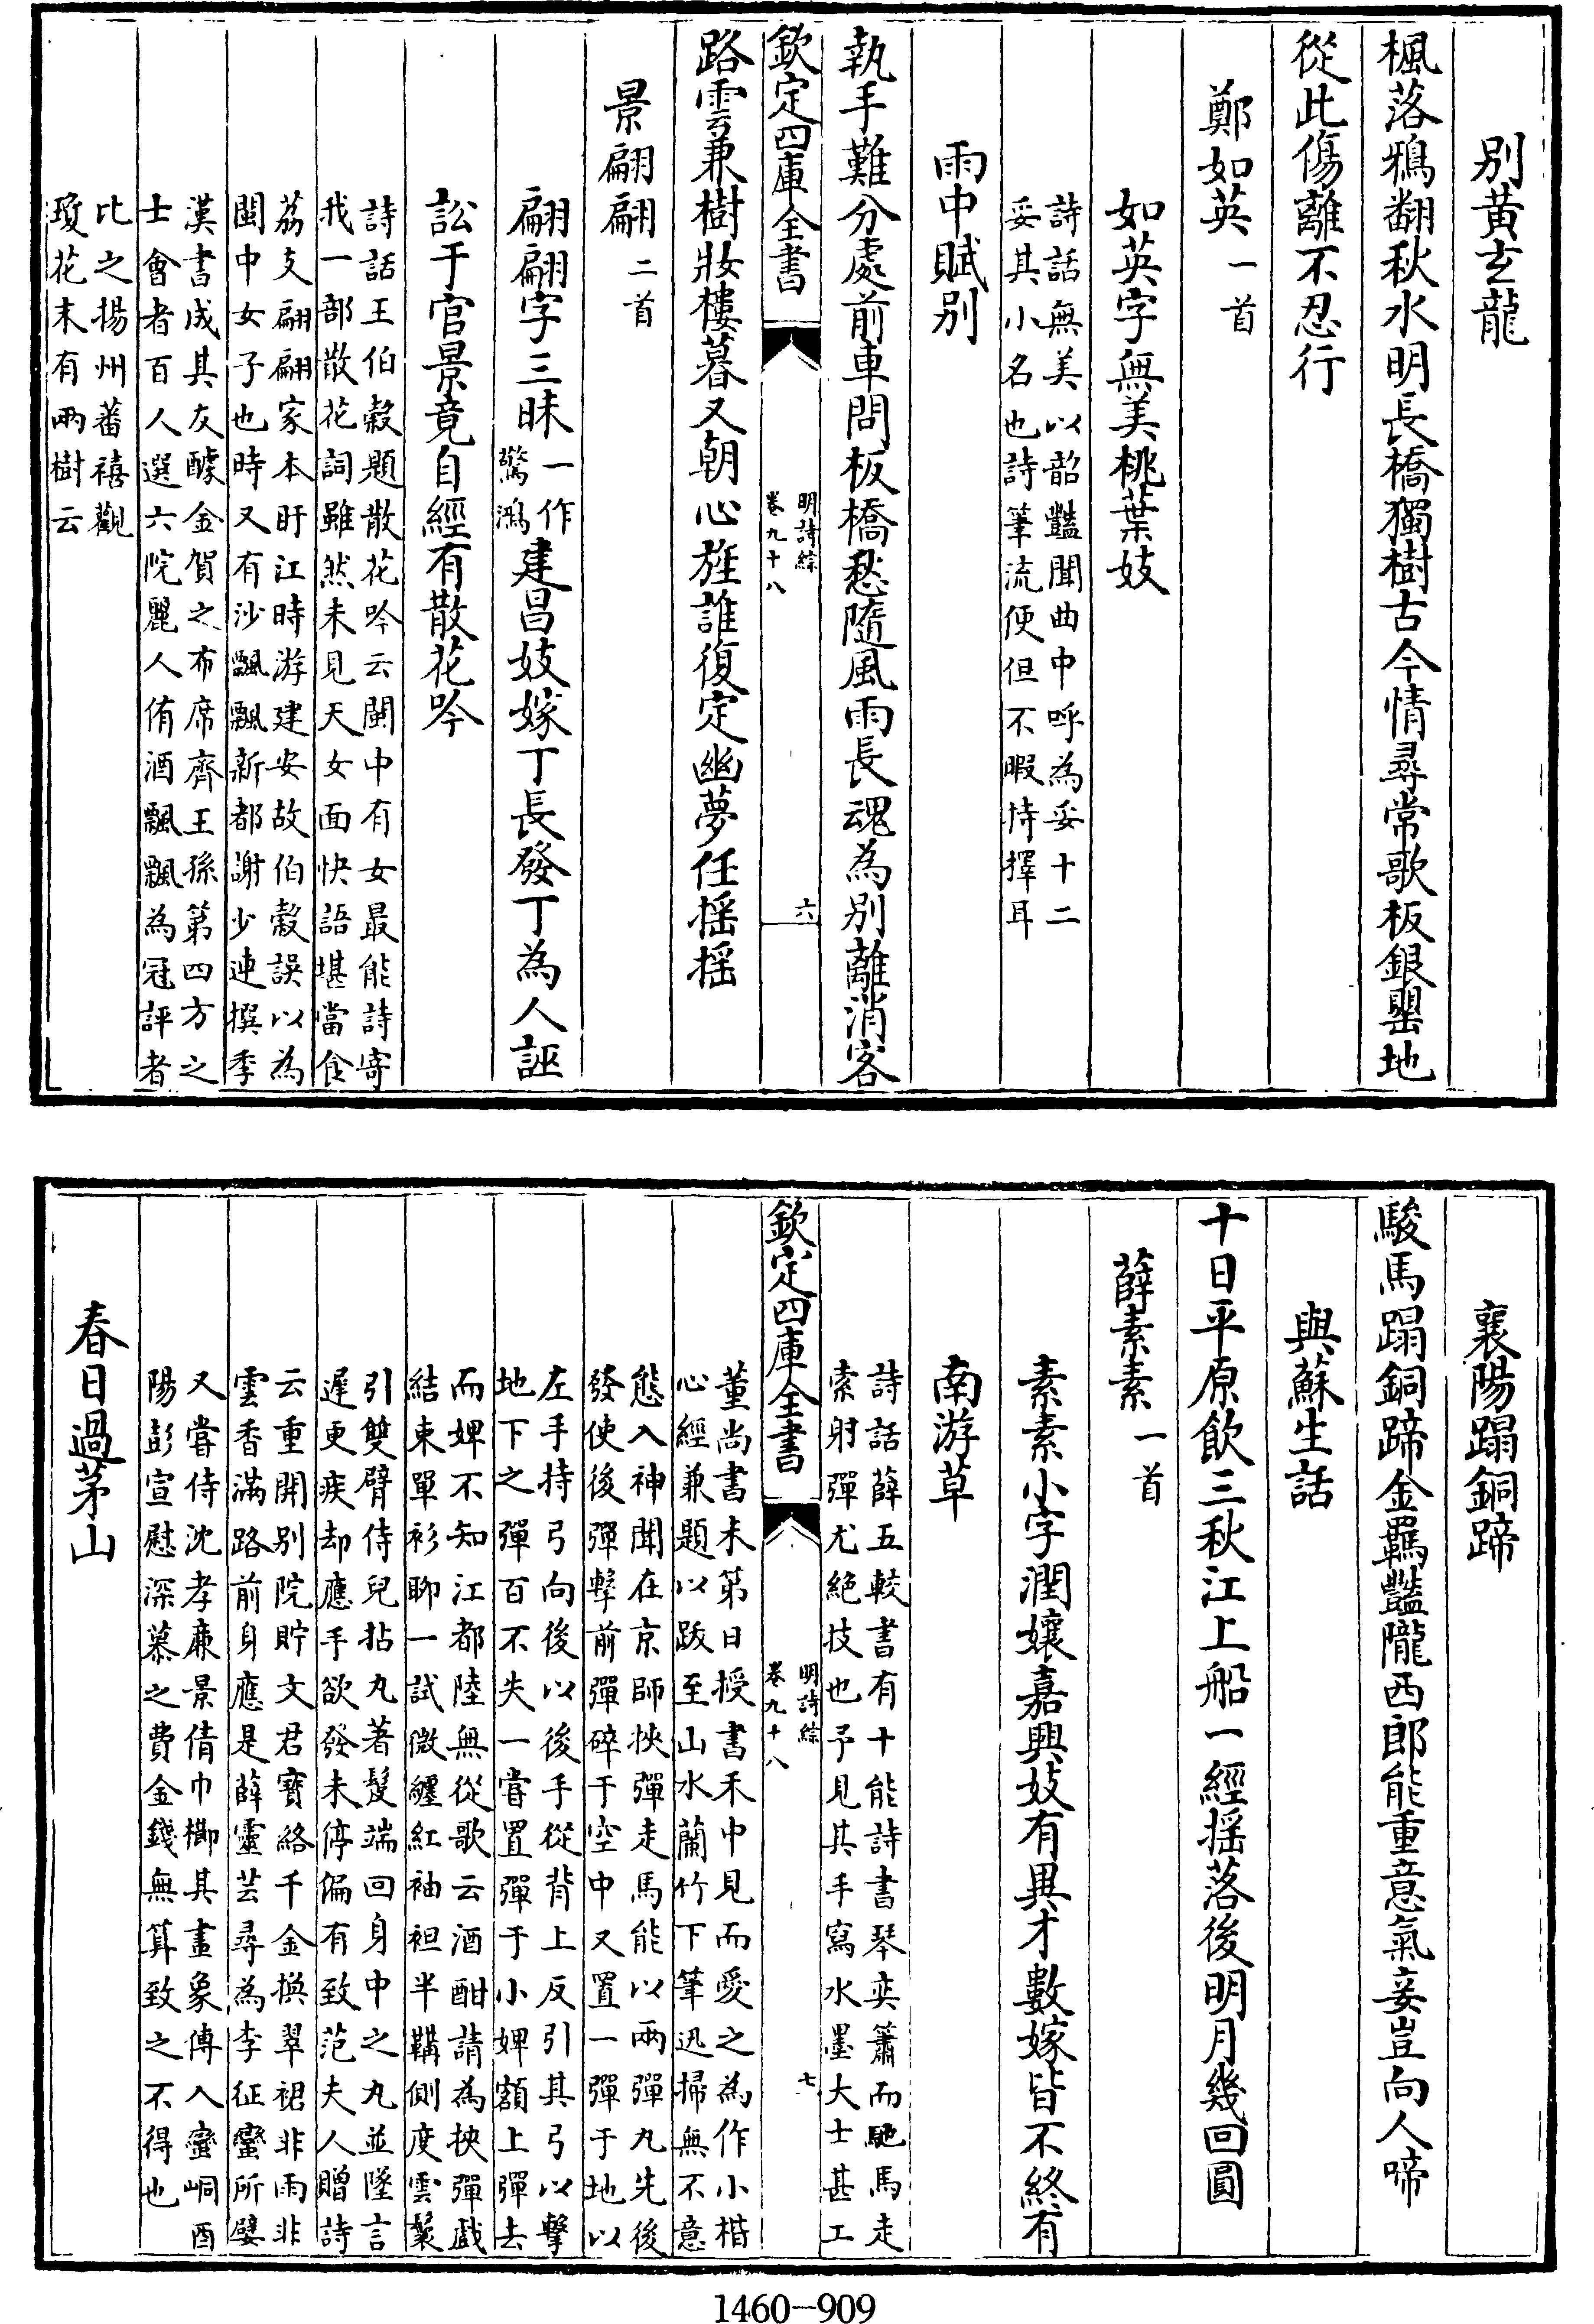 別黄玄龍
楓落鴉翻秋水明長橋獨樹古今情尋常歌板銀罌地
從此傷離不忍行
鄭如英一首
如英字無美桃葉妓
詩話無美以韶豔聞曲中呼為妥十二
妥其小名也詩筆流便但不暇持擇耳
雨中賦别
執手難分處前車問板橋愁隨風雨長魂為别離消客
欽定四庫全書
明詩綜
卷九十八
六
路雲兼樹妝樓暮又朝心旌誰復定幽夢任揺揺
景翩翩二首
翩翩字三昧一作驚鴻建昌妓嫁丁長發丁為人誣
訟于官景竟自經有散花吟
詩話王伯穀題散花吟云閩中有女最能詩寄
我一部散花詞雖然未見天女面快語堪當食
荔支翩翩家本盱江時游建安故伯穀誤以為
閩中女子也時又有沙飄飄新都謝少連撰季
漢書成其友醵金賀之布席齊王孫第四方之
士會者百人選六院麗人侑酒飄飄為冠評者
比之揚州蕃禧觀
瓊花末有兩樹云
襄陽蹋銅蹄
駿馬蹋銅蹄金羈豔隴西郎能重意氣妾豈向人啼
與蘇生話
十日平原飲三秋江上船一經揺落後明月幾回圓
薛素素一首
素素小字潤孃嘉興妓有異才數嫁皆不終有
南游草
詩話薛五較書有十能詩書琴奕簫而馳馬走
索射彈尤絶技也予見其手寫水墨大士甚工
欽定四庫全書
明詩綜
卷九十八
七
董尚書未第日授書禾中見而愛之為作小楷
心經兼題以跋至山水蘭竹下筆迅掃無不意
態入神聞在京師挾彈走馬能以兩彈丸先後
發使後彈擊前彈碎于空中又置一彈于地以
左手持弓向後以後手從背上反引其弓以擊
地下之彈百不失一嘗置彈于小婢額上彈去
而婢不知江都陸無從歌云酒酣請為挾彈戲
結束單衫聊一試微纏紅袖袒半韝側度雲鬟
引雙臂侍兒拈丸著髮端回身中之丸並墜言
遲更疾却應手欲發未停偏有致范夫人贈詩
云重開别院貯文君寳絡千金換翠裙非雨非
雲香滿路前身應是薛靈芸尋為李征蠻所嬖
又嘗侍沈孝亷景倩巾櫛其畫象傳入蠻峒酉
陽彭宣慰深慕之費金錢無算致之不得也
春日過茅山
1460-909